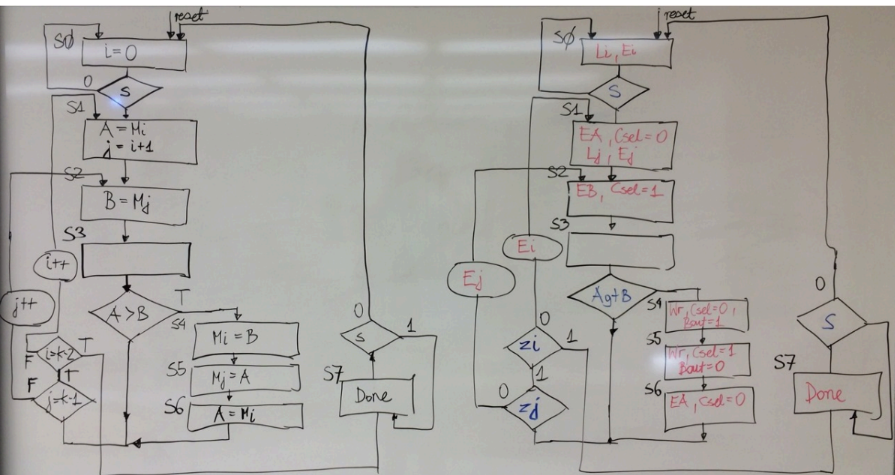 reset
SØ
i=0
0
S
S1
A = Mi
j = i+1
S2
B = Mj
S3
i++
j++
A>B
T
S4
Mi = B
S5
Mj = A
S6
A = Mi
i=k-2
F
T
T
F
j=k-1
0
S
1
S7
Done
reset
SØ
Li, Ei
S
S1
EA, Csel=0
Lj, Ej
S2
EB, Csel=1
S3
Ei
Ej
AgtB
S4
Wr, Csel=0,
Bout=1
S5
Wr, Csel=1
Bout=0
S6
EA, Csel=0
0
zi
1
1
0
zj
0
S
S7
Done